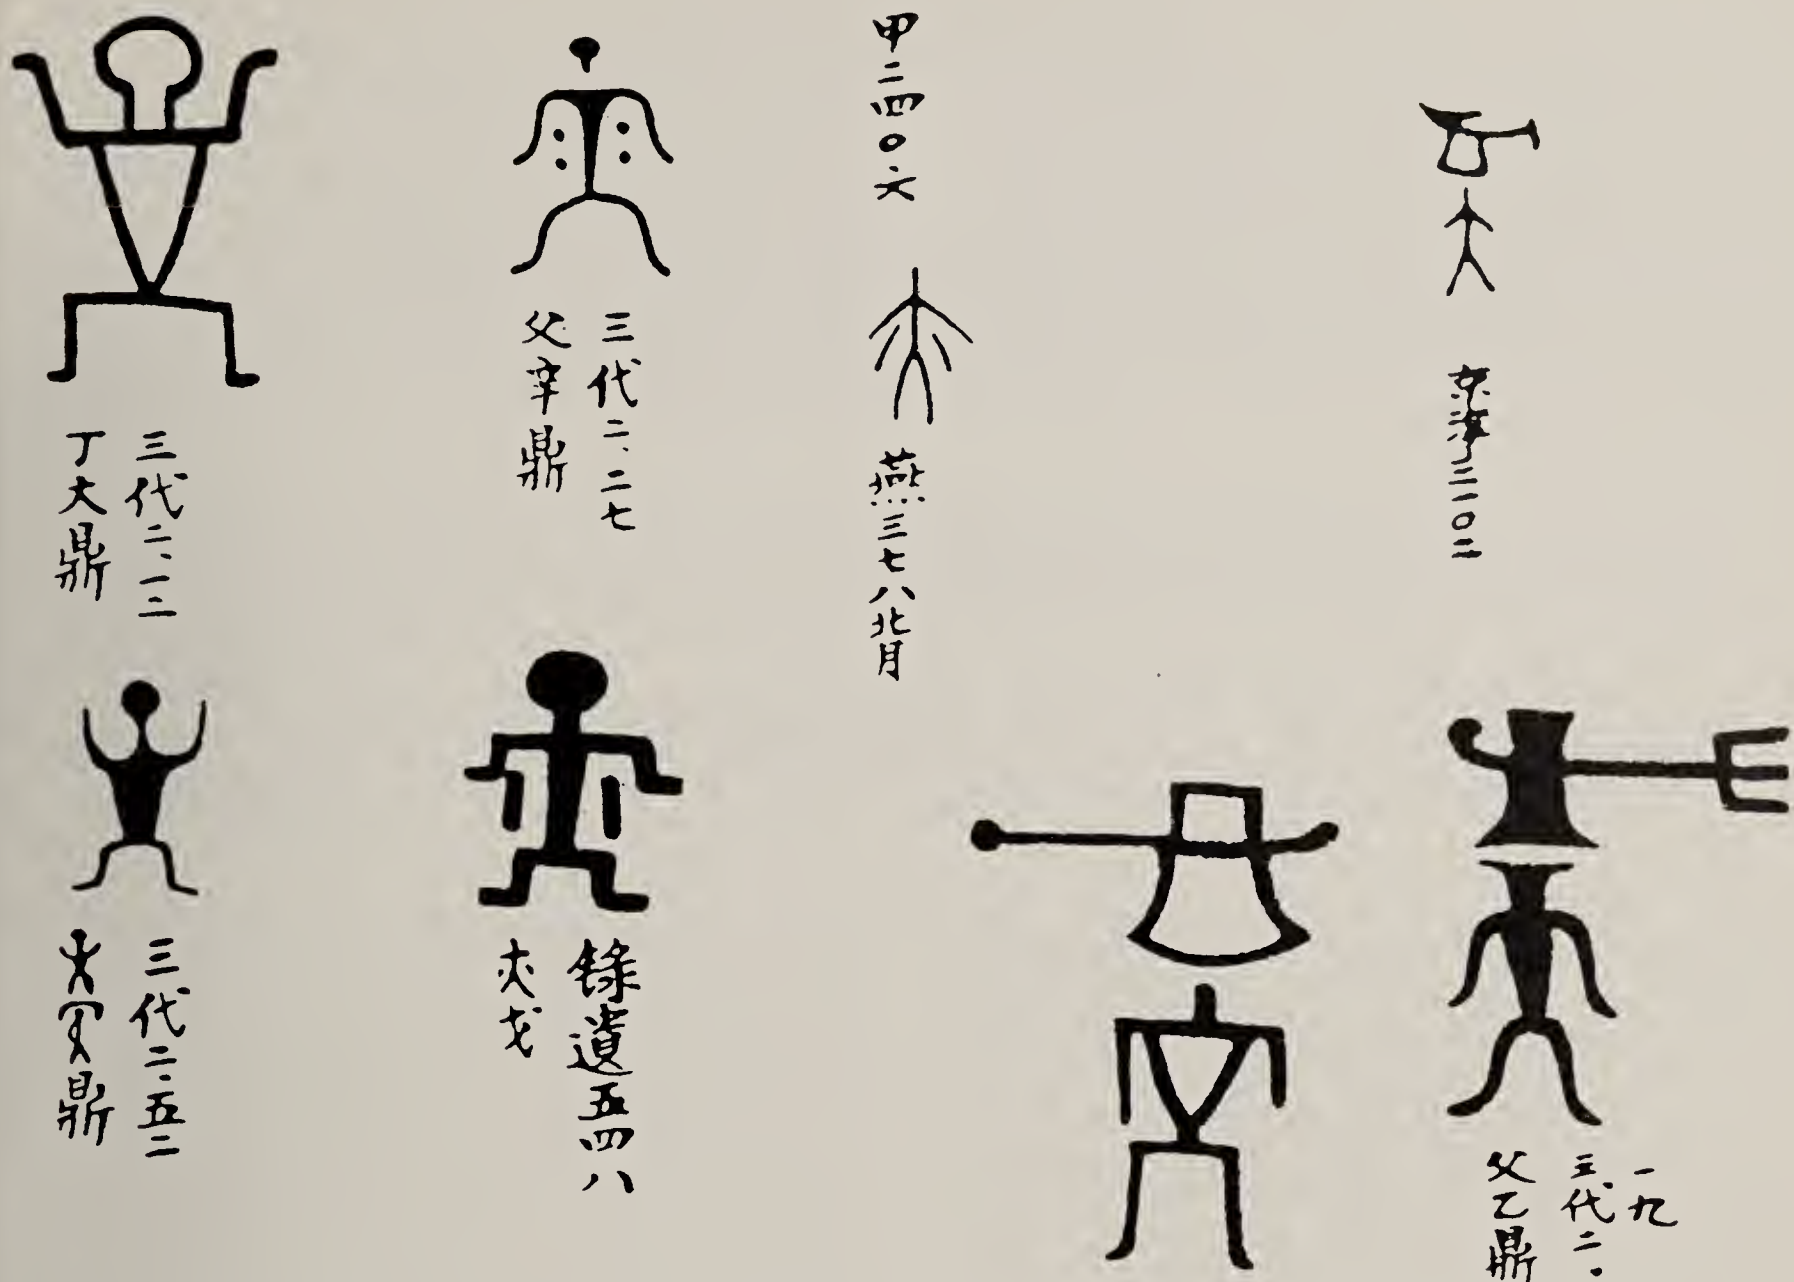 京津三一〇二
甲二四〇六
燕三七八背
三代二、二七
父辛鼎
三代二、一二
丁大鼎
三代二.
一九
父乙鼎
錄遺五四八
戈
三代二.五二
鼎